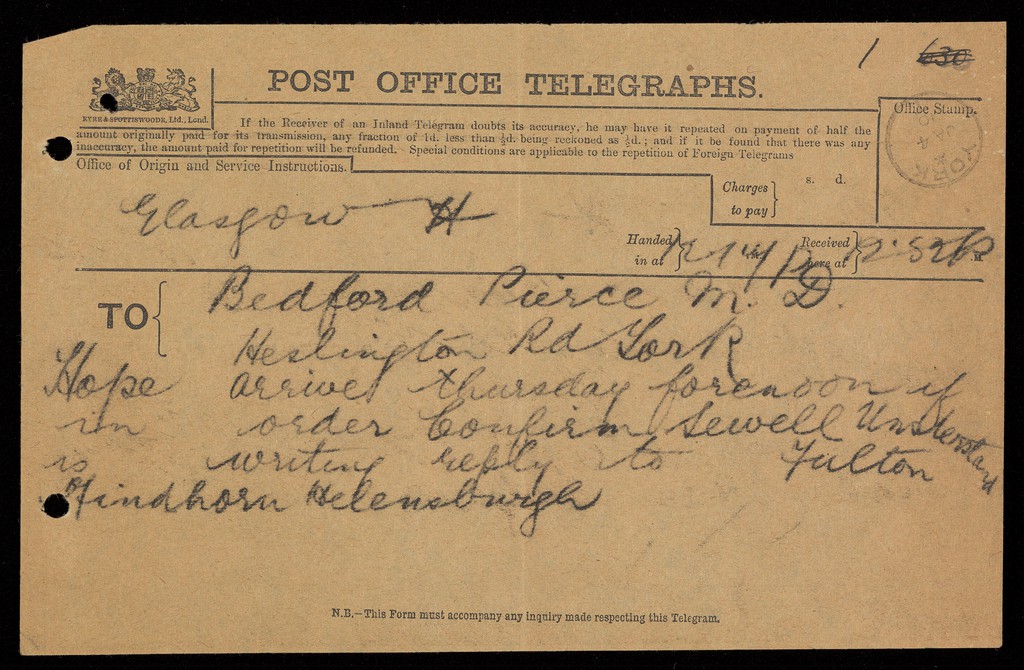 1 630
POST OFFICE TELEGRAPHS.
EYRE & SPOTTISWOODE, Ltd., Lond.
Office Stamp.
If the Receiver of an Inland Telegram doubts its accuracy, he may have it repeated on payment of half the
amount originally paid for its transmission, any fraction of 1d. less than ½d. being reckoned as ½d.; and if it be found that there was any
inaccuracy, the amount paid for repetition will be refunded. Special conditions are applicable to the repetition of Foreign Telegrams
YORK
JA 4
Office of Origin and Service Instructions.
s. d.
Charges
to pay
Glasgow H
Handed
in at
12 14 P
Received
here at
12.52 P
M
TO
Bedford Pierce M. D.
Heslington Rd York
Hope arrive thursday forenoon if
in order Confirm Sewell Understand
is writing reply to Fulton
Findhorn Helensburgh
N.B.—This Form must accompany any inquiry made respecting this Telegram.